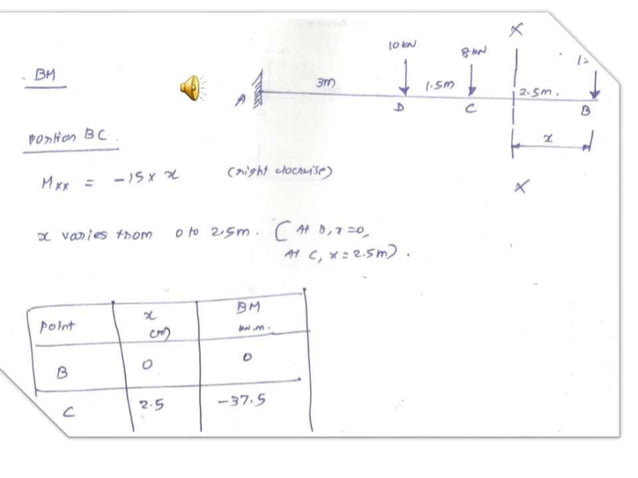 BM
10 kN
8 kN
X
3m
1.5m
2.5m.
A
D
C
B
x
X
portion BC
Mxx = -15 x x (right clockwise)
x varies from 0 to 2.5m. (At B, x=0,
At C, x = 2.5m).
point
x
(m)
BM
kN.m.
B
0
0
C
2.5
-37.5